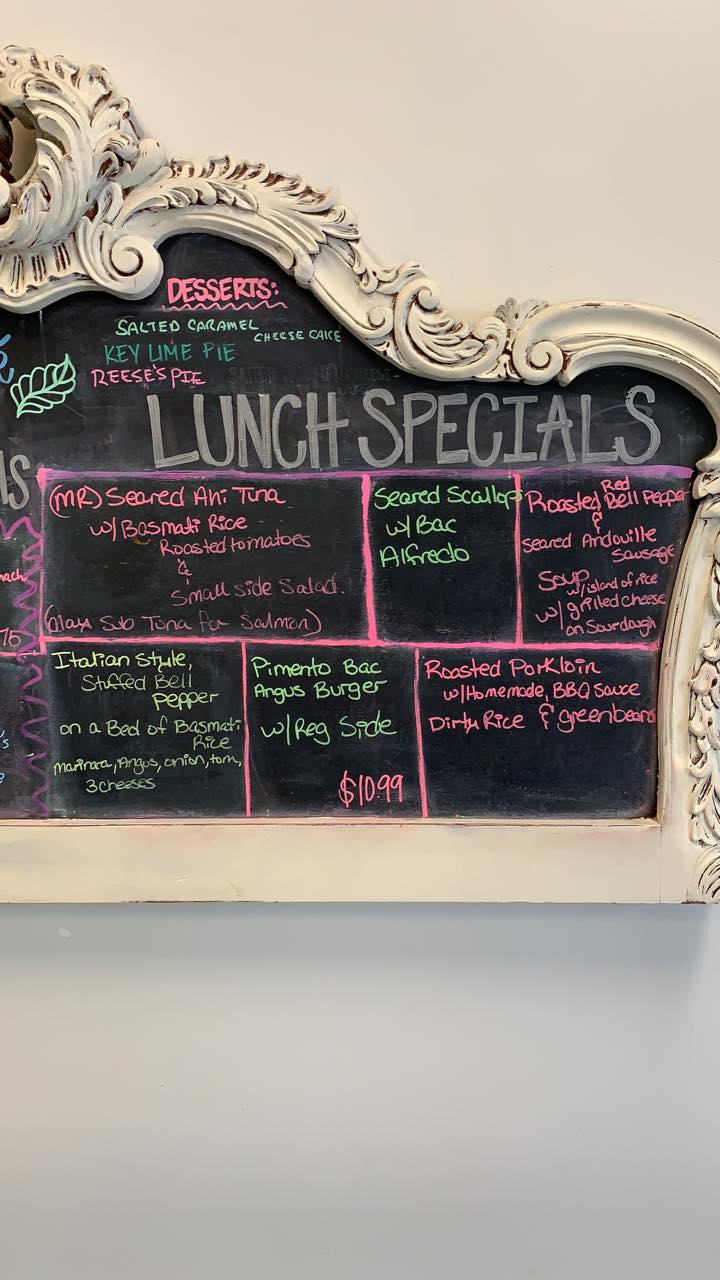 DESSERTS:
SALTED CARAMEL
CHEESE CAKE
KEY LIME PIE
REESE'S PIE
LUNCH SPECIALS
(MR) Seared Ahi Tuna
w/Basmati Rice
Roasted tomatoes
&
Small side Salad.
(May Sub Tuna for Salmon)
Seared Scallop
w/Bac
Alfredo
Red
Roasted Bell Pepper
&
Seared Andouille
Sausage
Soup
w/island of rice
w/grilled cheese
on Sourdough
Italian Style,
Stuffed Bell
Pepper
on a Bed of Basmati
Rice
marinara, Angus, onion, tom,
3 cheeses
Pimento Bac
Angus Burger
w/Reg Side
$10.99
Roasted Porkloin
w/Homemade, BBQ Sauce
Dirty Rice & greenbeans